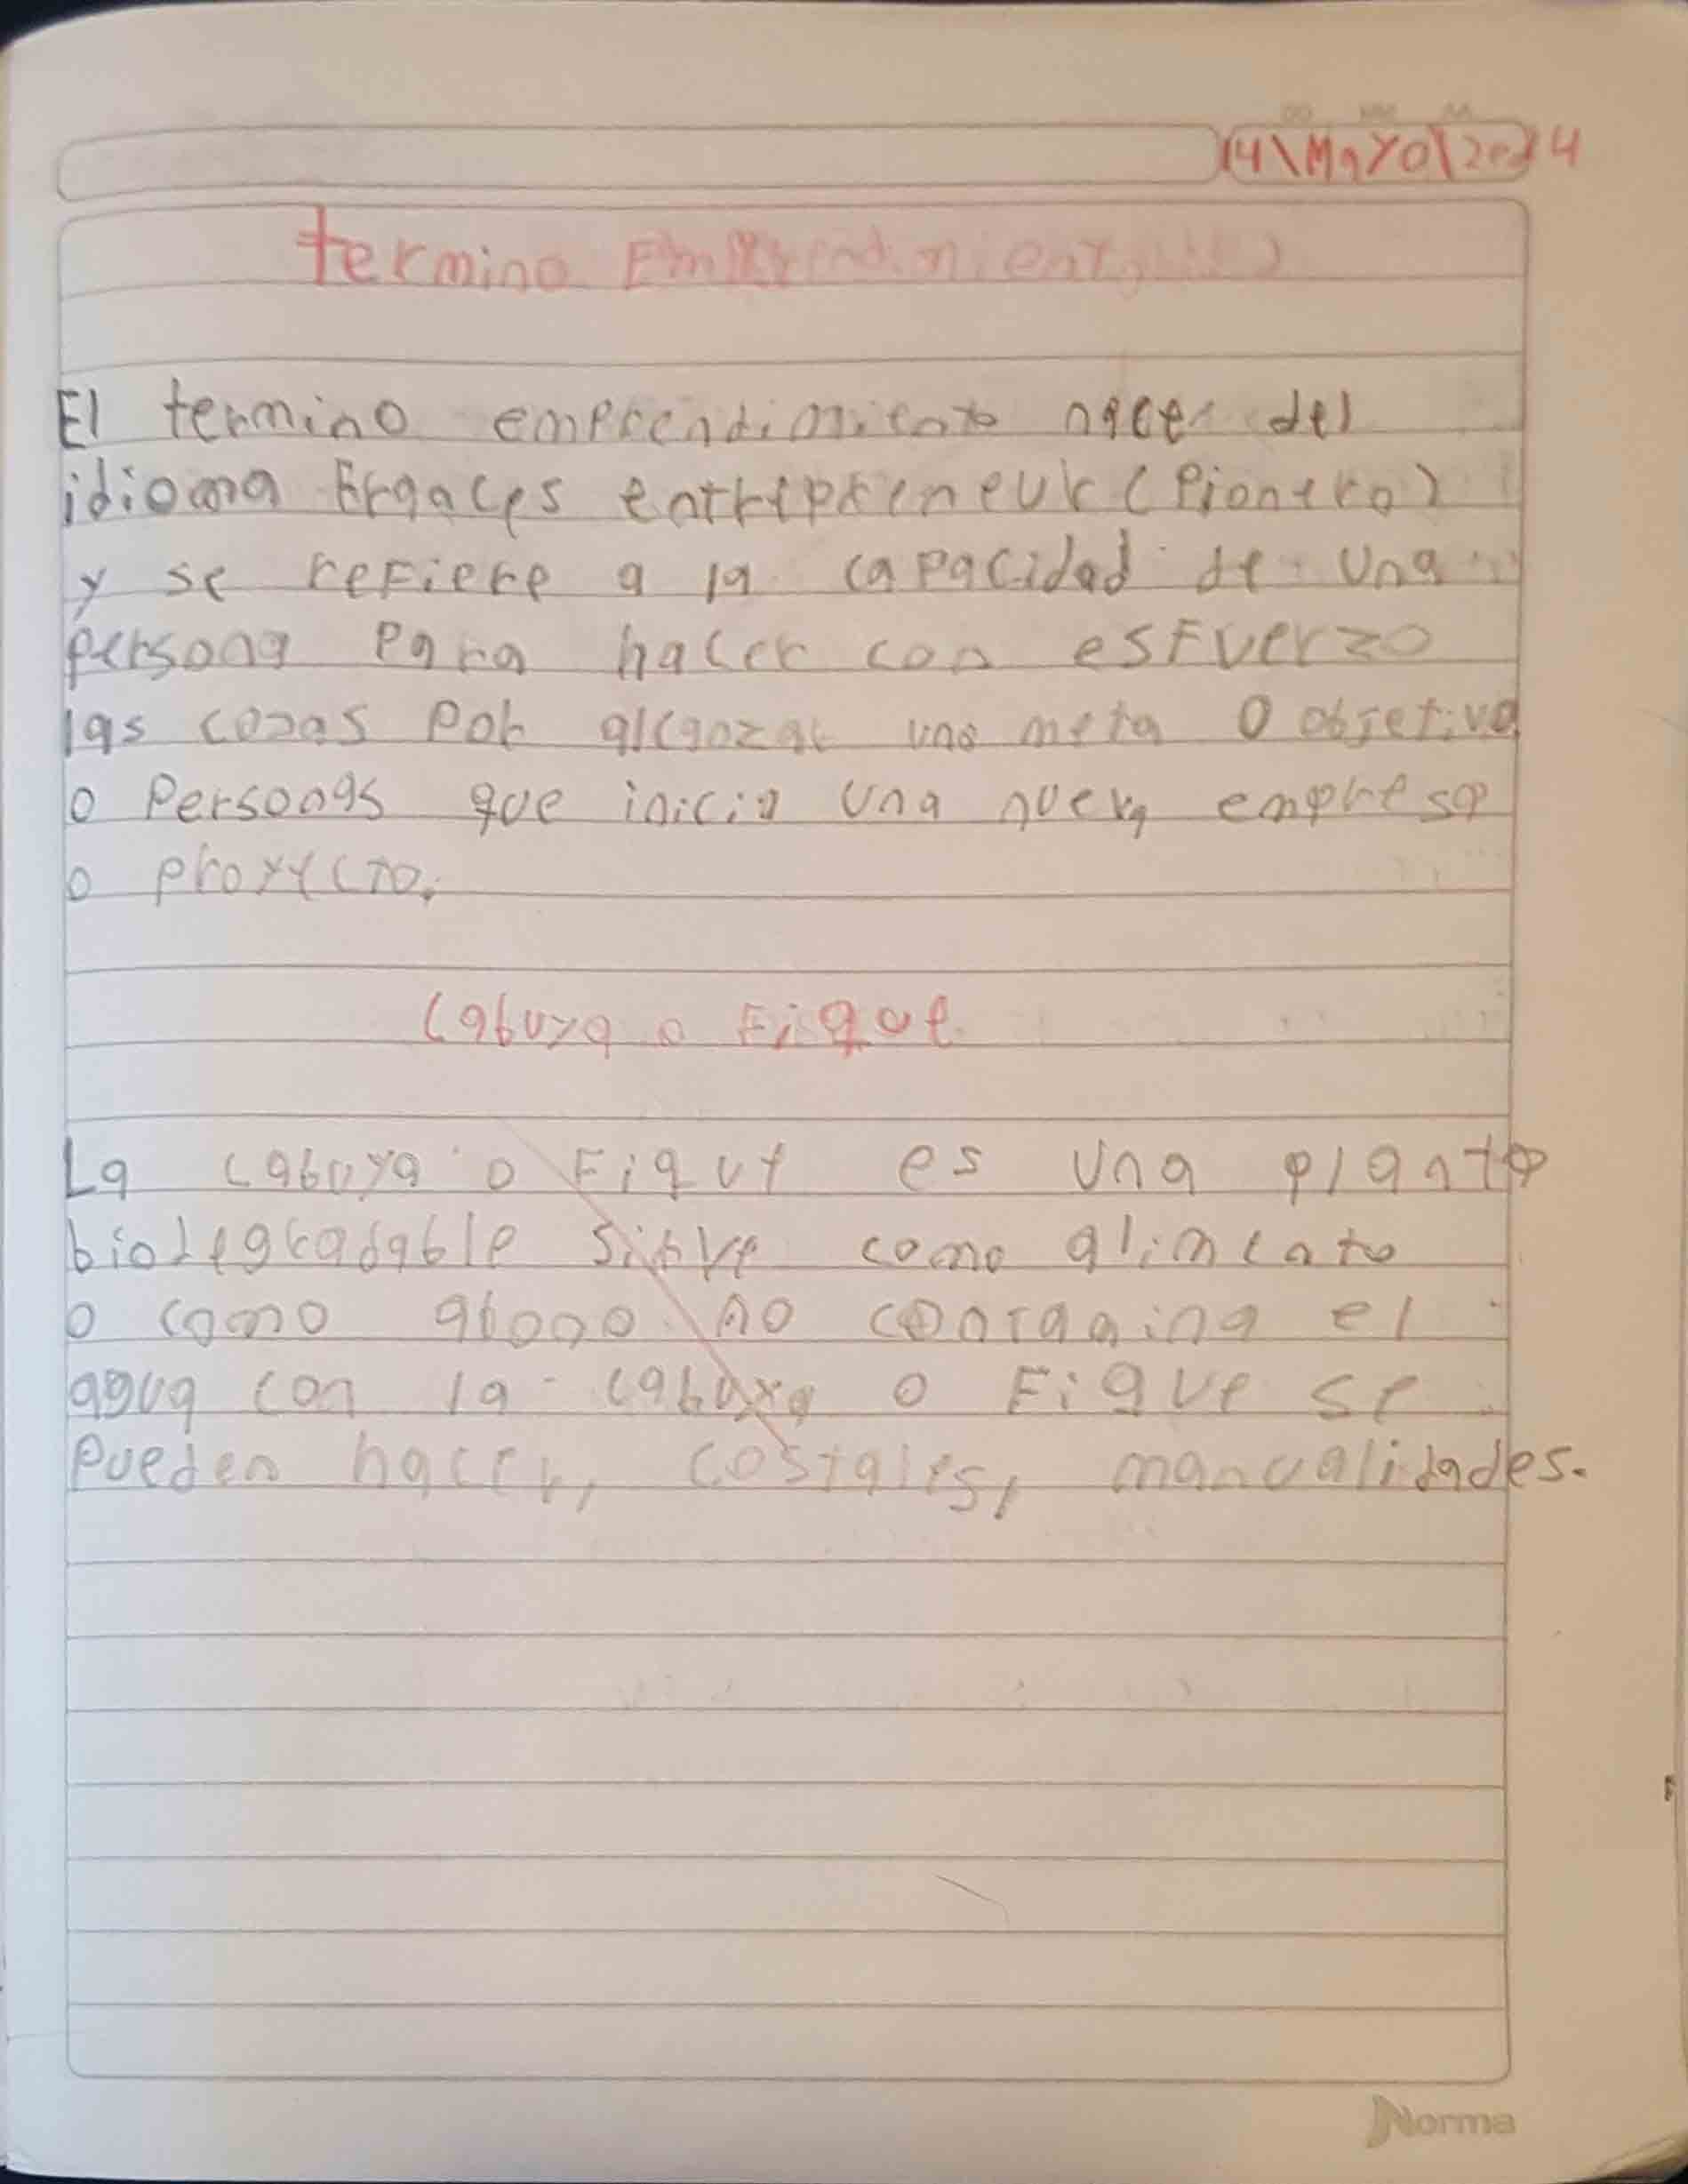 14\Mayo\2024
termino Emprendimiento
El termino emprendimiento nace del
idioma Frances entrepreneur (Pionero)
y se refiere a la capacidad de una
persona para hacer con esfuerzo
las cosas por alcanzar una meta o objetivo
o Personas que inicia una nueva empresa
o proyecto.
Cabuya o Fique
La cabuya o Fique es una planta
biodegradable sirve como alimento
o como abono no contamina el
agua con la cabuya o Fique se
pueden hacer, costales, manualidades.
Norma